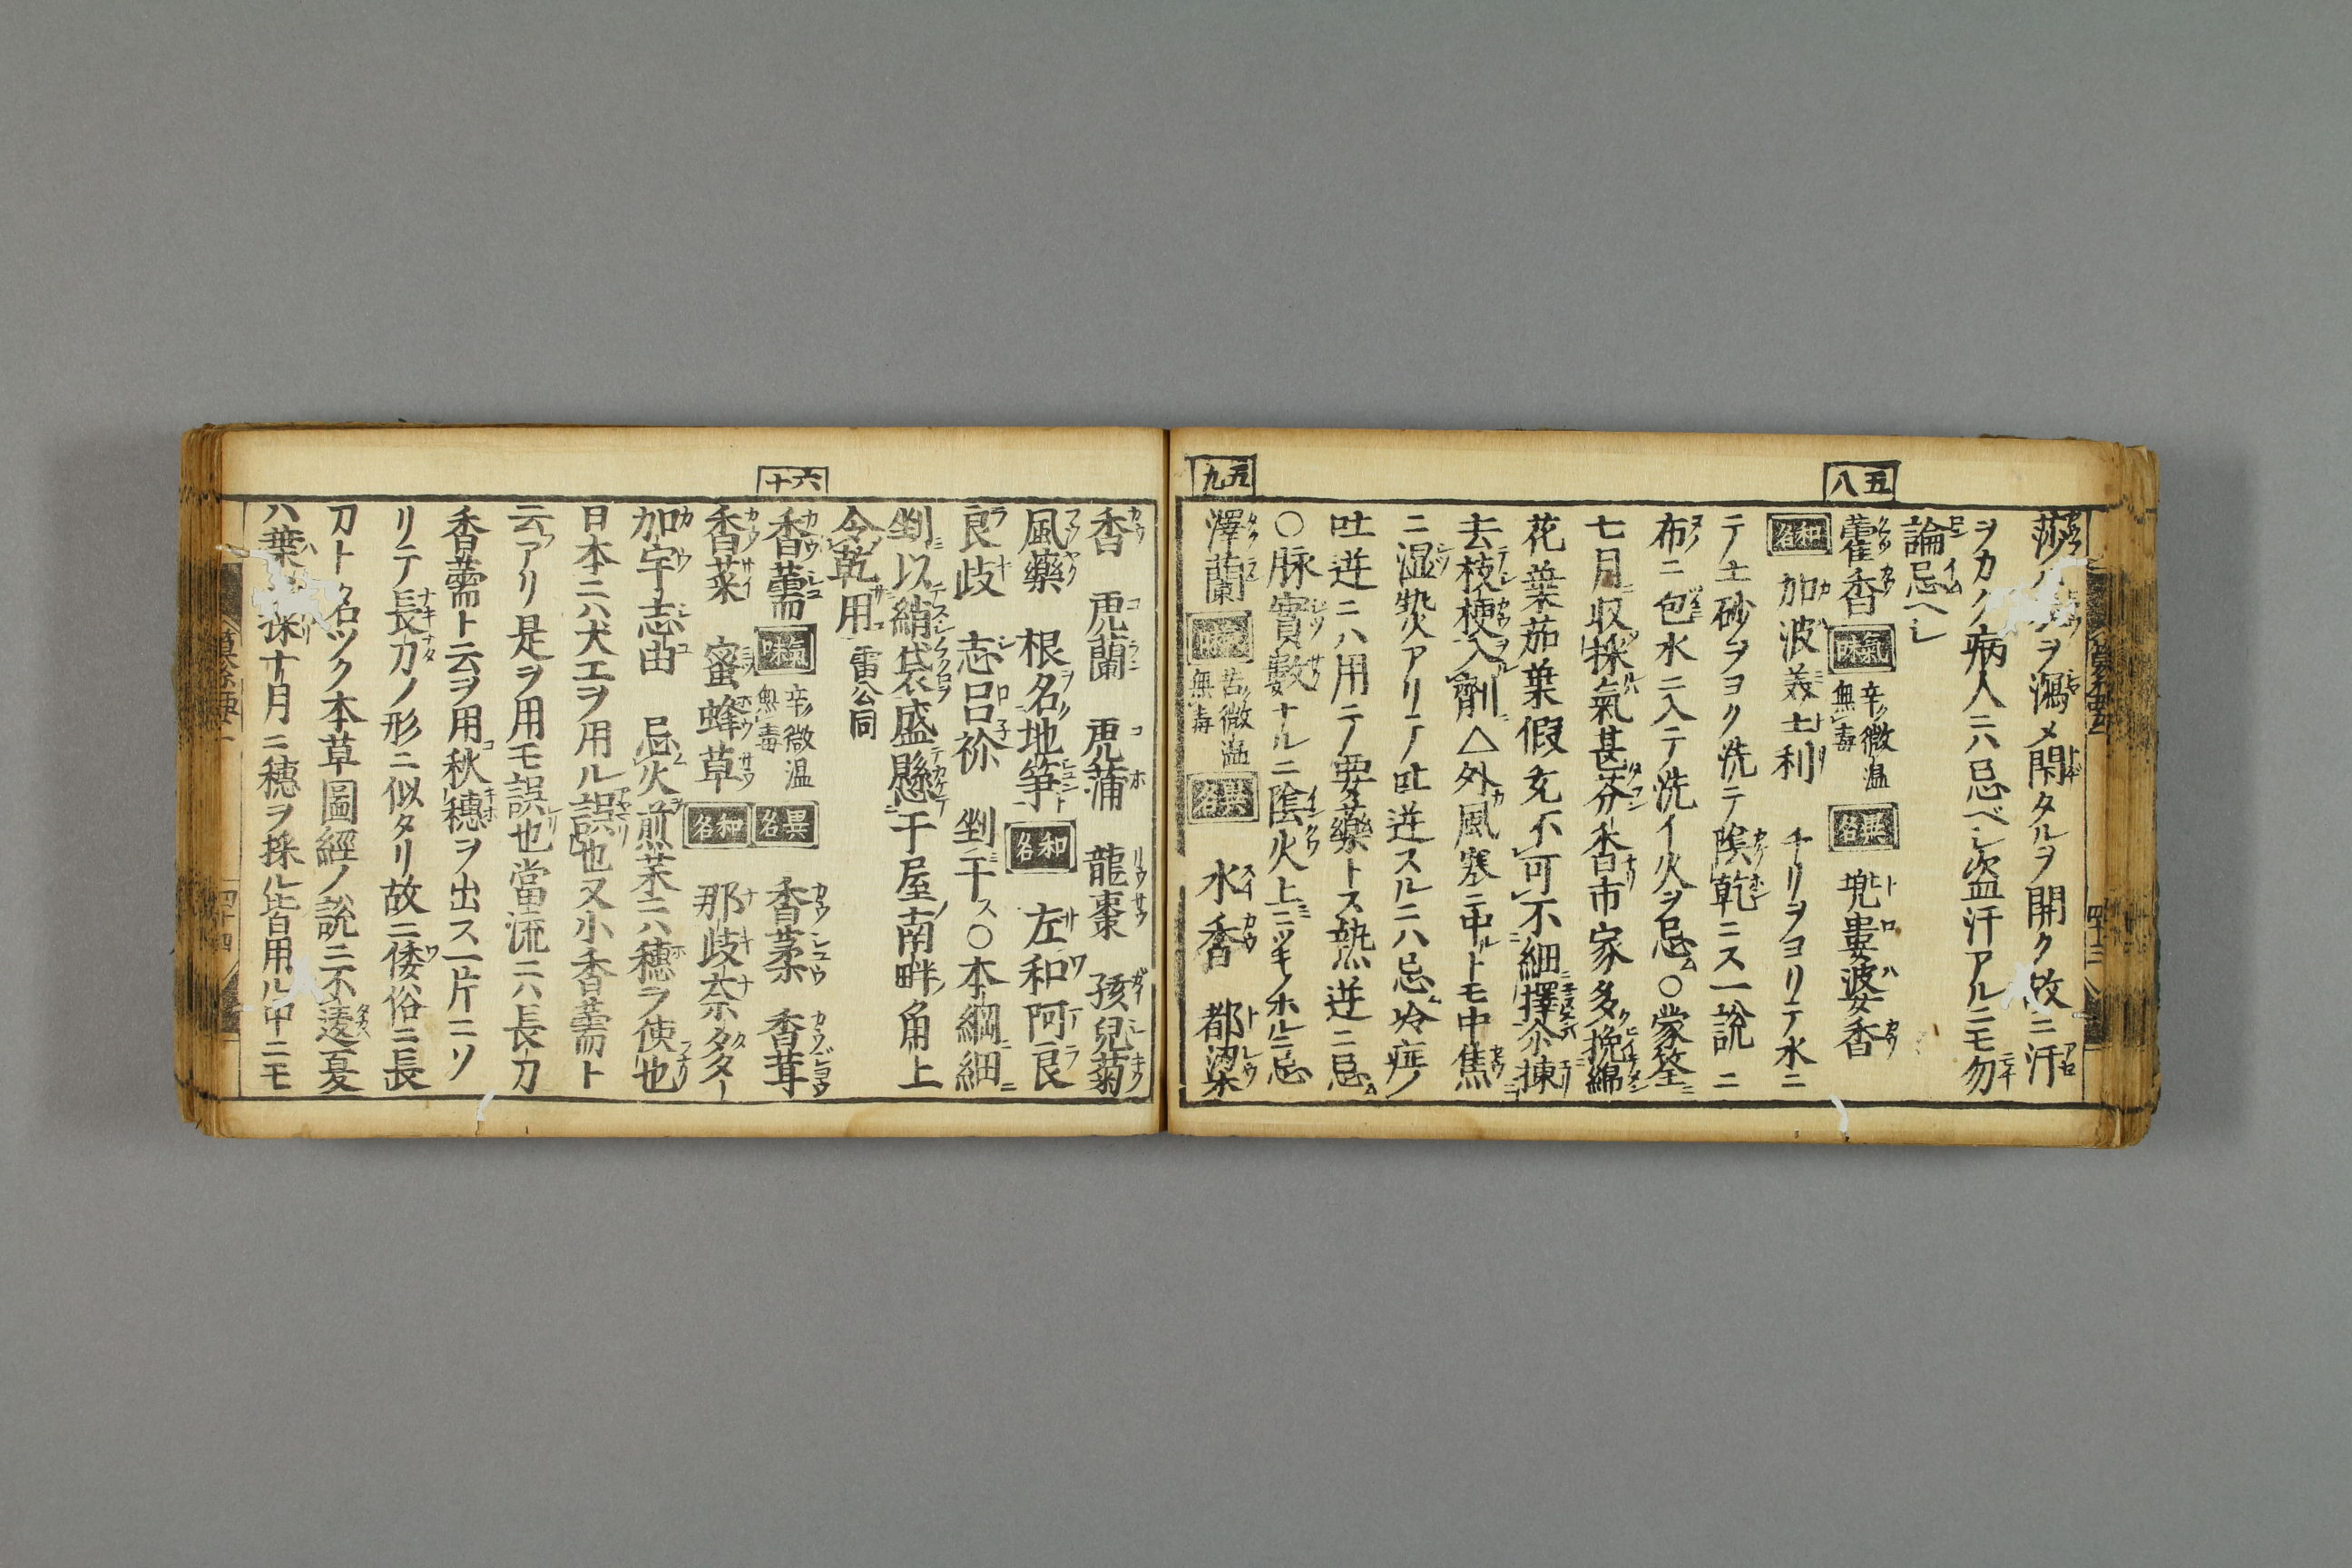 五八
ヲ瀉メ閉タルヲ開ク故ニ汗
ヲカク病人ニハ忌ベシ盗汗アルニモ勿
論忌ヘシ
藿香 氣味 辛微温 無毒 異名 兜婁婆香
和名 加波美土利 チリヲヨリテ水ニ
テ土砂ヲヨク洗テ陰乾ニス一説ニ
布ニ包水ニ入テ洗イ火ヲ忌○蒙筌
七月収採氣甚芬香市家多攙綿
花葉茄葉假充不可不細擇揀
去枝梗入剤△外風寒ニ中トモ中焦
ニ湿熱アリテ吐逆スルニハ忌冷症ノ
吐逆ニハ用テ要藥トス熱逆ニ忌
○脉實數ナルニ陰火上ニツキノホルニ忌
五九
澤蘭 氣味 苦微温 無毒 異名 水香 都梁
香 虎蘭 虎蒲 龍棗 孩兒菊
風藥 根名地笋 和名 左和阿良
良岐 志呂祢 剉干ス○本綱細
剉以絹袋盛懸于屋南畔角上
令乾用 雷公同
六十
香薷 氣味 辛微温 無毒 異名 香菜 香茸
香菜 蜜蜂草 和名 那岐奈多
加宇志由 忌火煎茶ニハ穂ヲ使也
日本ニハ犬エヲ用ル誤也又小香薷ト
云アリ是ヲ用モ誤也當流ニハ長刀
香薷ト云ヲ用秋穗ヲ出ス一片ニソ
リテ長刀ノ形ニ似タリ故ニ倭俗ニ長
刀ト名ツク本草圖經ノ説ニ不違夏
ハ葉採十月ニ穂ヲ採ル皆用ル中ニモ